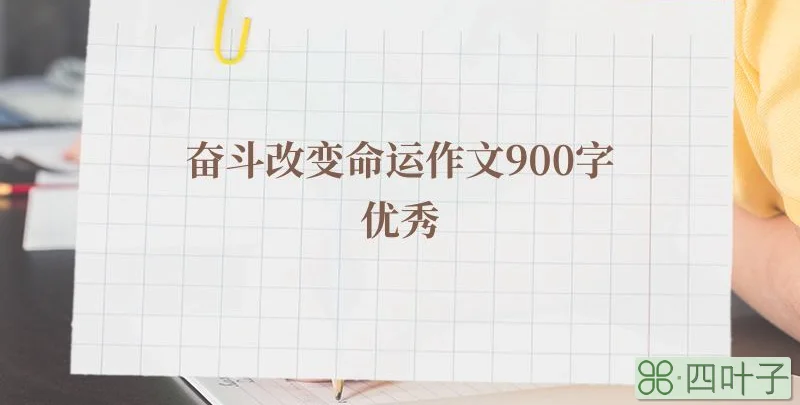 奋斗改变命运作文900字
优秀
四叶子